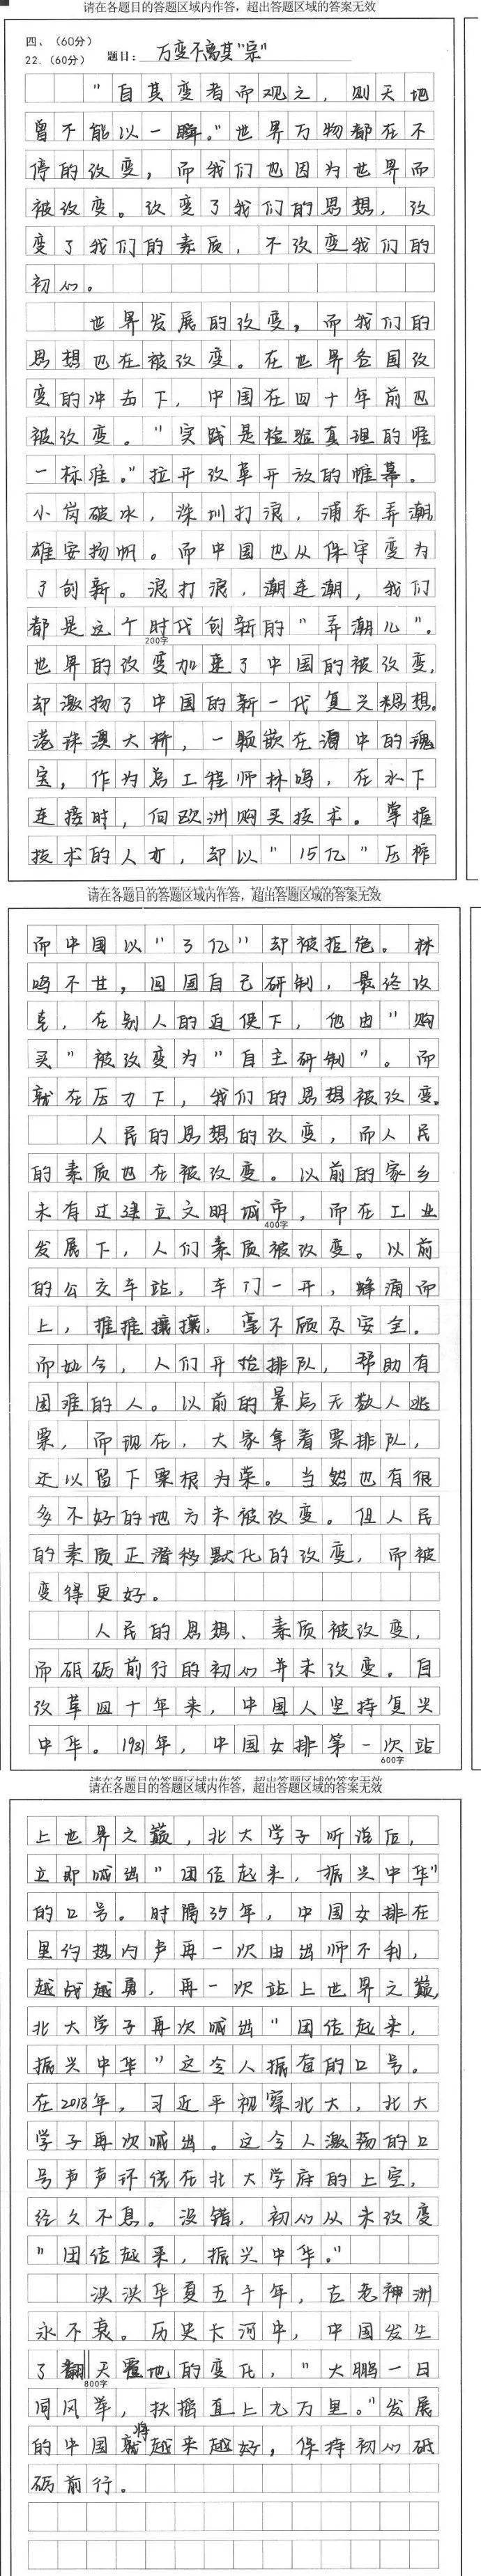 请在各题目的答题区域内作答，超出答题区域的答案无效
四、（60分）
22.（60分） 题目：万变不离其"宗"
"自其变者而观之，则天地
曾不能以一瞬。"世界万物都在不
停的改变，而我们也因为世界而
被改变。改变了我们的思想，改
变了我们的素质，不改变我们的
初心。
世界发展的改变，而我们的
思想也在被改变。在世界各国改
变的冲击下，中国在四十年前也
被改变。"实践是检验真理的唯
一标准。"拉开改革开放的帷幕。
小岗破冰，深圳打浪，浦东弄潮
雄安扬帆。而中国也从保守变为
了创新。浪打浪，潮连潮，我们
都是这个时代创新的"弄潮儿"。
200字
世界的改变加速了中国的被改变，
却激扬了中国的新一代复兴思想。
港珠澳大桥，一颗嵌在海中的瑰
宝，作为总工程师林鸣，在水下
连接时，向欧洲购买技术。掌握
技术的人才，却以"15亿"压榨
请在各题目的答题区域内作答，超出答题区域的答案无效
而中国以"3亿"却被拒绝。林
鸣不甘，回国自己研制，最终攻
克，在别人的迫使下，他由"购
买"被改变为"自主研制"。而
就在压力下，我们的思想被改变。
人民的思想的改变，而人民
的素质也在被改变。以前的家乡
未有过建立文明城市，而在工业
400字
发展下，人们素质被改变。以前
的公交车站，车门一开，蜂涌而
上，推推攘攘，毫不顾及安全。
而如今，人们开始排队，帮助有
困难的人。以前的景点无数人逃
票，而现在，大家拿着票排队，
还以留下票根为荣。当然也有很
多不好的地方未被改变。但人民
的素质正潜移默化的改变，而被
变得更好。
人民的思想、素质被改变，
而砥砺前行的初心并未改变。自
改革四十年来，中国人坚持复兴
中华。1981年，中国女排第一次站
600字
请在各题目的答题区域内作答，超出答题区域的答案无效
上世界之巅，北大学子听说后，
立即喊出"团结起来，振兴中华"
的口号。时隔35年，中国女排在
里约热内卢再一次由出师不利，
越战越勇，再一次站上世界之巅，
北大学子再次喊出"团结起来，
振兴中华"这令人振奋的口号。
在2018年，习近平视察北大，北大
学子再次喊出。这令人激荡的口
号声声环绕在北大学府的上空，
经久不息。没错，初心从未改变
"团结起来，振兴中华。"
泱泱华夏五千年，古老神洲
永不衰。历史长河中，中国发生
了翻天覆地的变化，"大鹏一日
800字
同风举，扶摇直上九万里。"发展
的中国将越来越好，保持初心砥
砺前行。